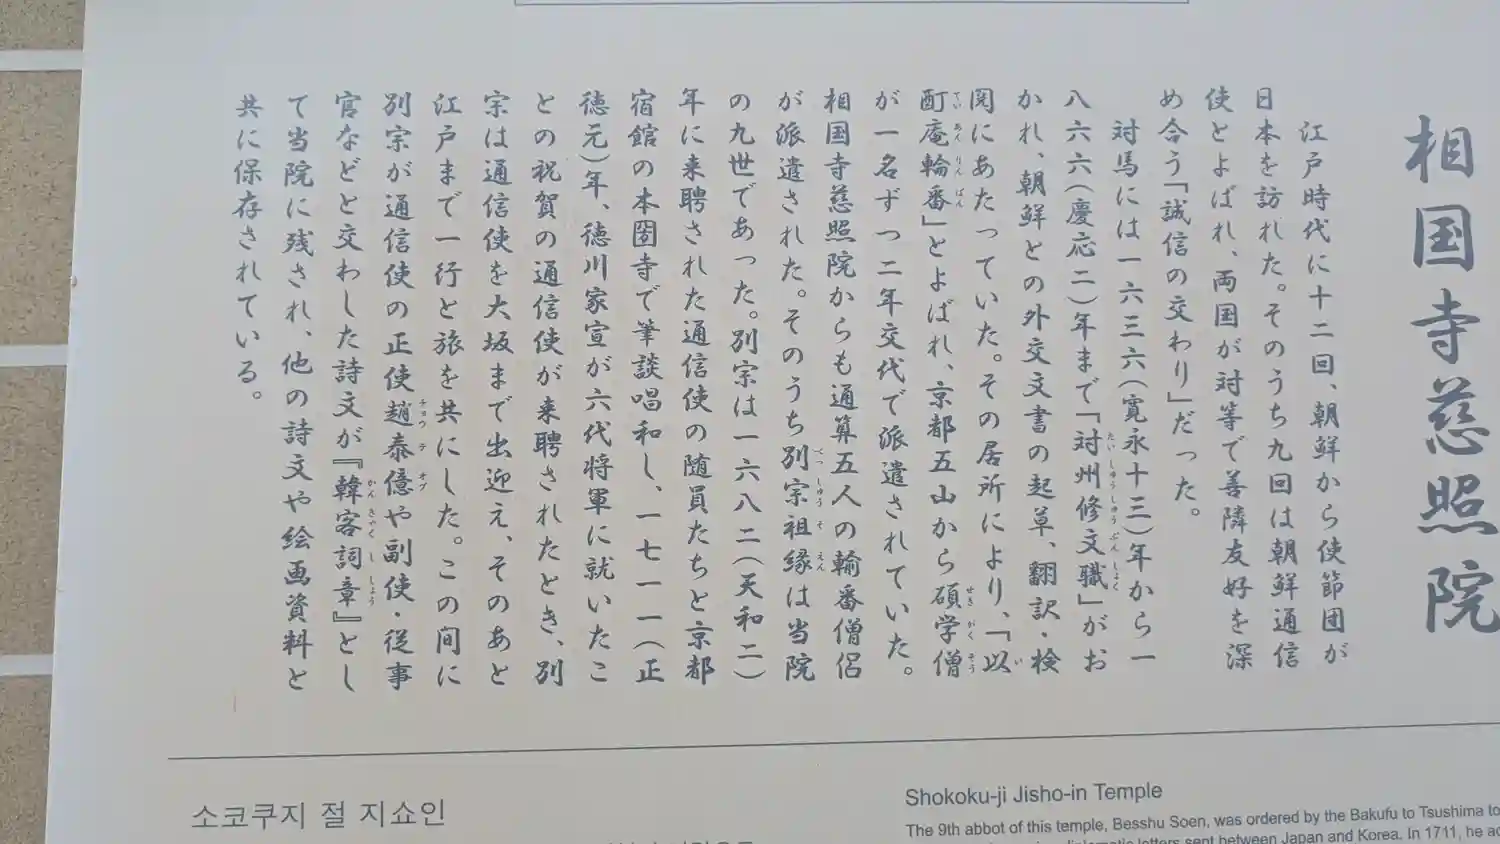 相国寺慈照院
江戸時代に十二回、朝鮮から使節団が
日本を訪れた。そのうち九回は朝鮮通信
使とよばれ、両国が対等で善隣友好を深
め合う「誠信の交わり」だった。
対馬には一六三六(寛永十三)年から一
八六六(慶応二)年まで「対州修文職」がお
かれ、朝鮮との外交文書の起草、翻訳・検
閲にあたっていた。その居所により、「以
酊庵輪番」とよばれ、京都五山から碩学僧
が一名ずつ二年交代で派遣されていた。
相国寺慈照院からも通算五人の輪番僧侶
が派遣された。そのうち別宗祖縁は当院
の九世であった。別宗は一六八二(天和二)
年に来聘された通信使の随員たちと京都
宿館の本圀寺で筆談唱和し、一七一一(正
徳元)年、徳川家宣が六代将軍に就いたこ
との祝賀の通信使が来聘されたとき、別
宗は通信使を大坂まで出迎え、そのあと
江戸まで一行と旅を共にした。この間に
別宗が通信使の正使趙泰億や副使・従事
官などと交わした詩文が『韓客詞章』とし
て当院に残され、他の詩文や絵画資料と
共に保存されている。
소코쿠지 절 지쇼인
Shokoku-ji Jisho-in Temple
The 9th abbot of this temple, Besshu Soen, was ordered by the Bakufu to Tsushima to
diplomatic letters sent between Japan and Korea. In 1711, he